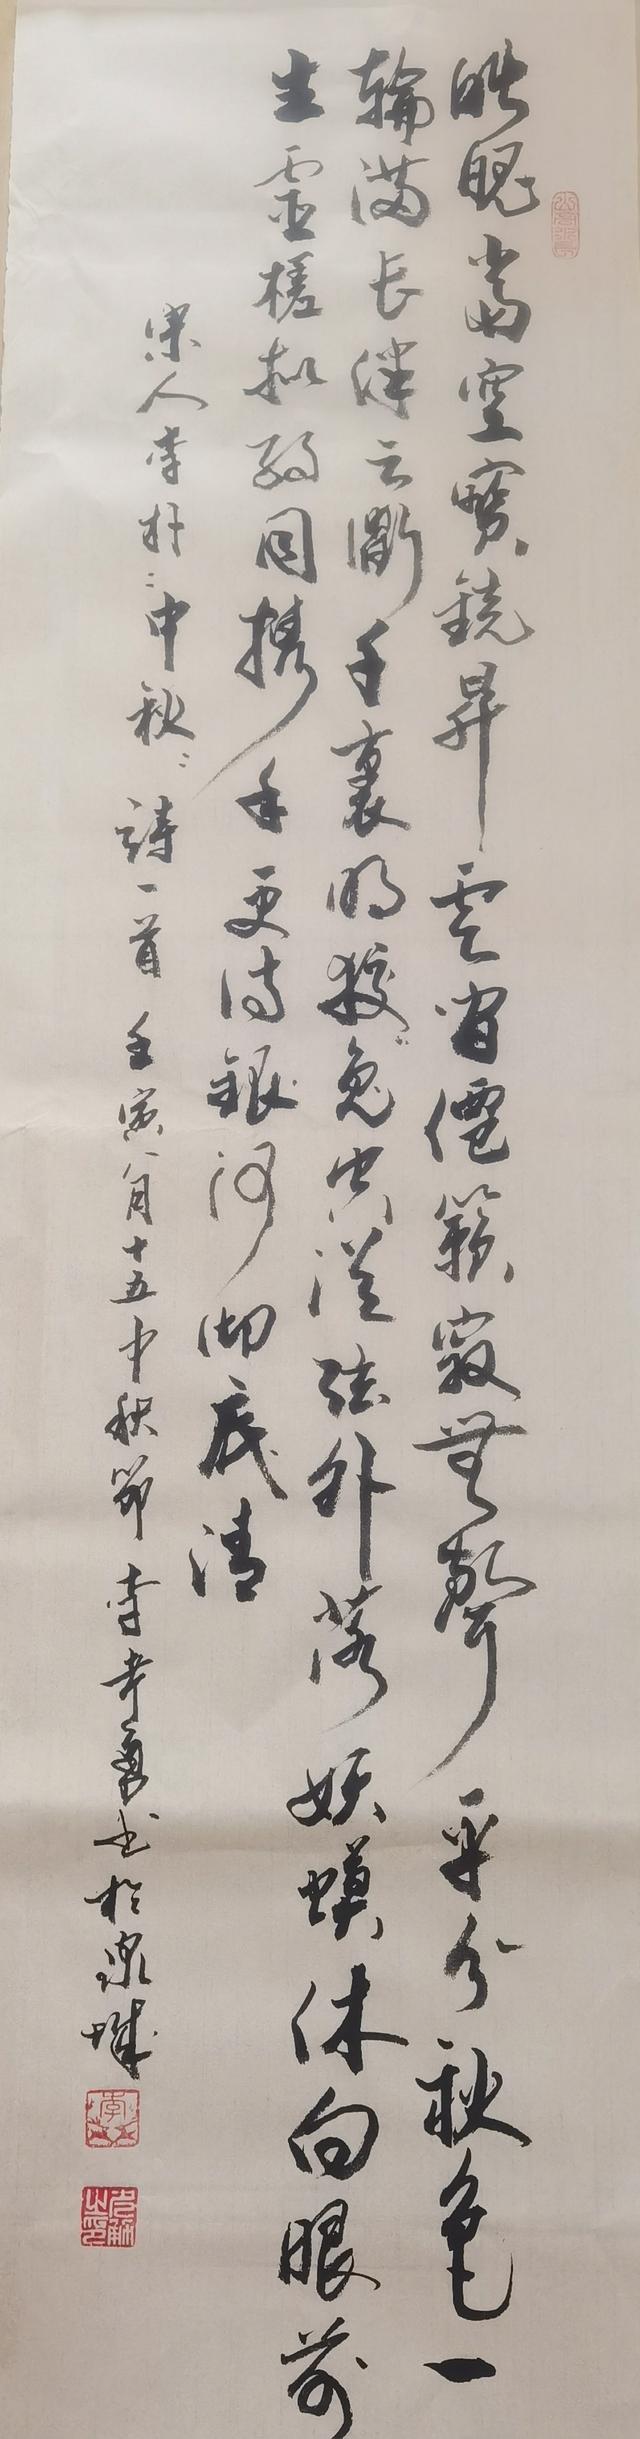 皓魄當空寶鏡昇雲間僊籟寂無聲平分秋色一
輪滿長伴云衢千裏明狡兔空從弦外落妖蟆休向眼前
生靈槎擬約同携手更待銀河徹底清
宋人李朴中秋詩一首壬寅八月十五中秋節李孝勇书於泉城